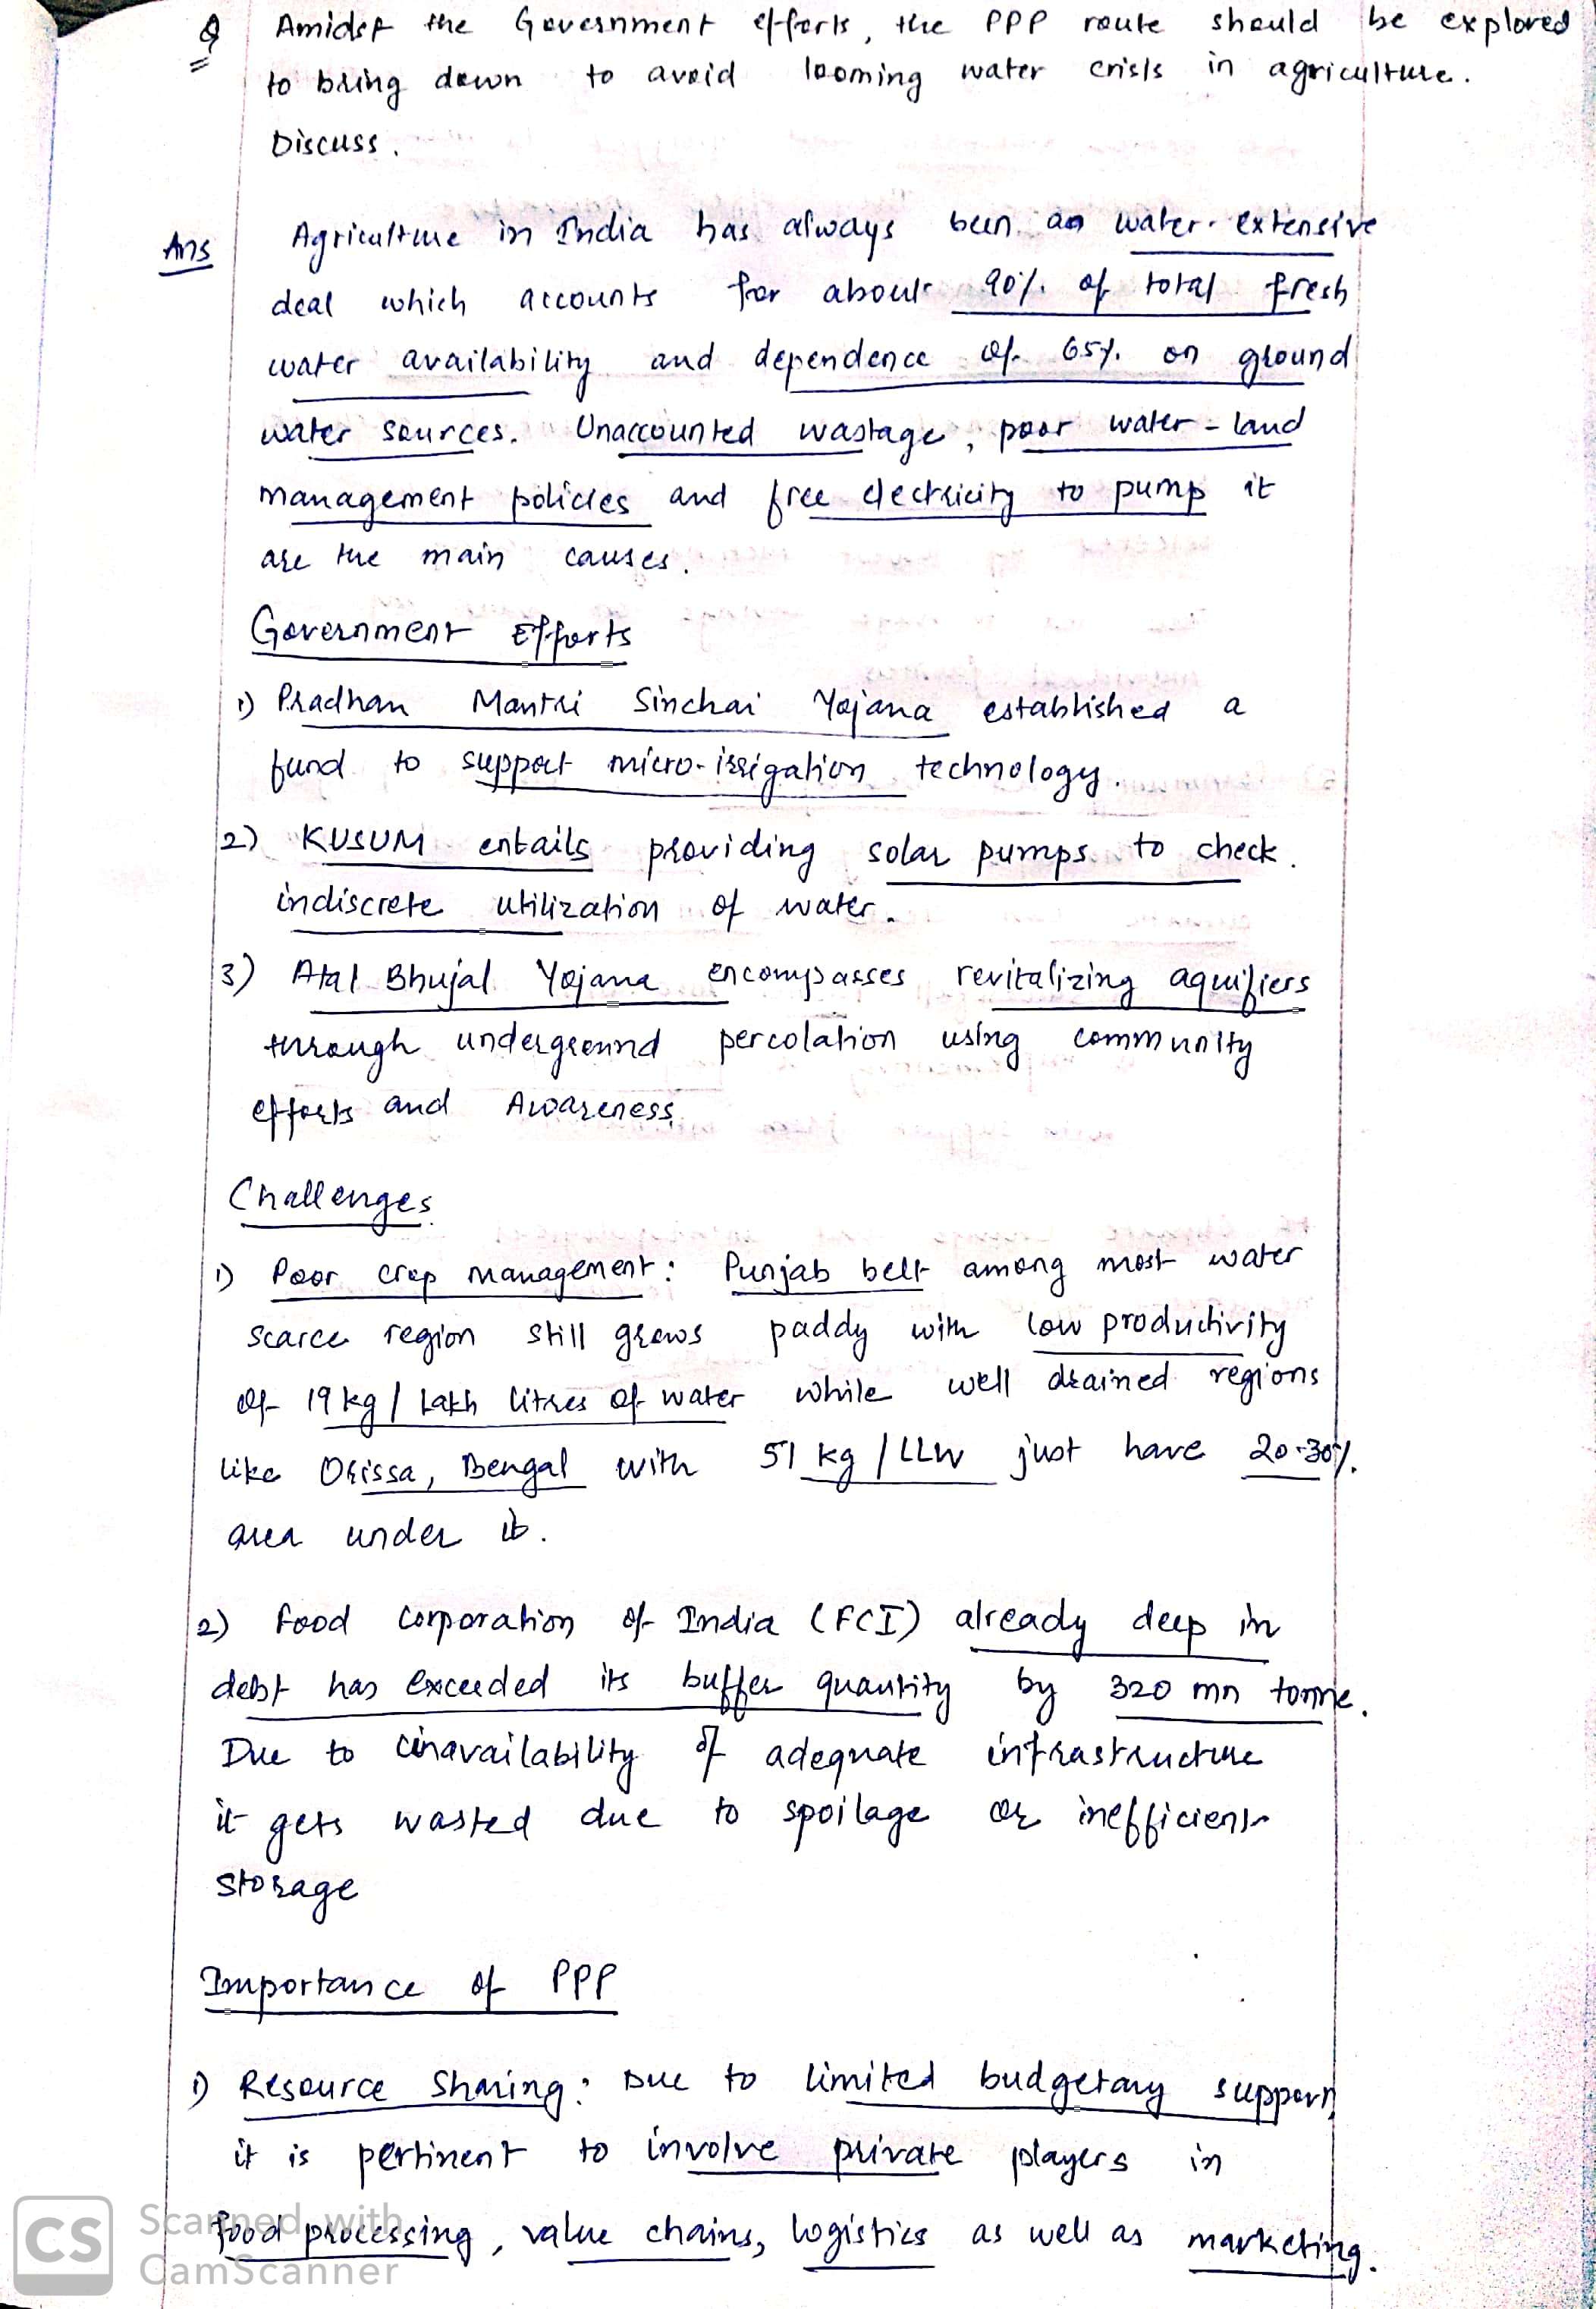 Q Amidst the Government efforts, the PPP route should be explored
to bring down to avoid looming water crisis in agriculture.
Discuss.
Ans Agriculture in India has always been an water-extensive
deal which accounts for about 90% of total fresh
water availability and dependence of 65% on ground
water sources. Unaccounted wastage, poor water-land
management policies and free electricity to pump it
are the main causes.
Government Efforts
1) Pradhan Mantri Sinchai Yojana established a
fund to support micro-irrigation technology.
2) KUSUM entails providing solar pumps to check
indiscrete utilization of water.
3) Atal Bhujal Yojana encompasses revitalizing aquifiers
through underground percolation using community
efforts and Awareness
Challenges
1) Poor crop management: Punjab belt among most water
scarce region still grows paddy with low productivity
of 19 kg / Lakh litres of water while well drained regions
like Orissa, Bengal with 51 kg / LLW just have 20-30%
area under it.
2) Food Corporation of India (FCI) already deep in
debt has exceeded its buffer quantity by 320 mn tonne.
Due to unavailability of adequate infrastructure
it gets wasted due to spoilage or inefficient
storage
Importance of PPP
1) Resource Sharing: Due to limited budgetary support,
it is pertinent to involve private players in
food processing, value chains, logistics as well as marketing.
CS Scanned with
CamScanner